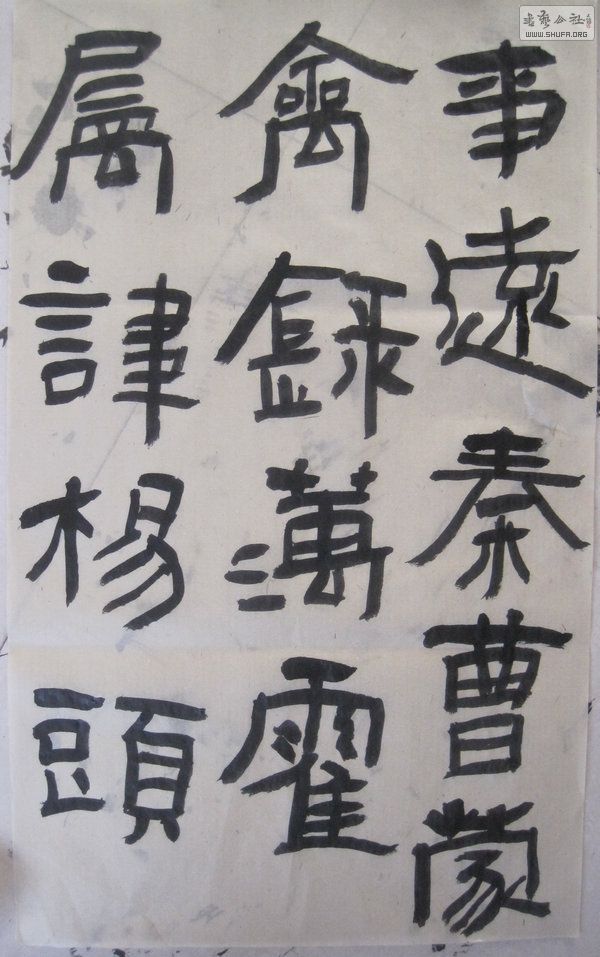 书艺公社
WWW.SHUFA.ORG
事遠秦曹蒙
禽錄霍
楊頭